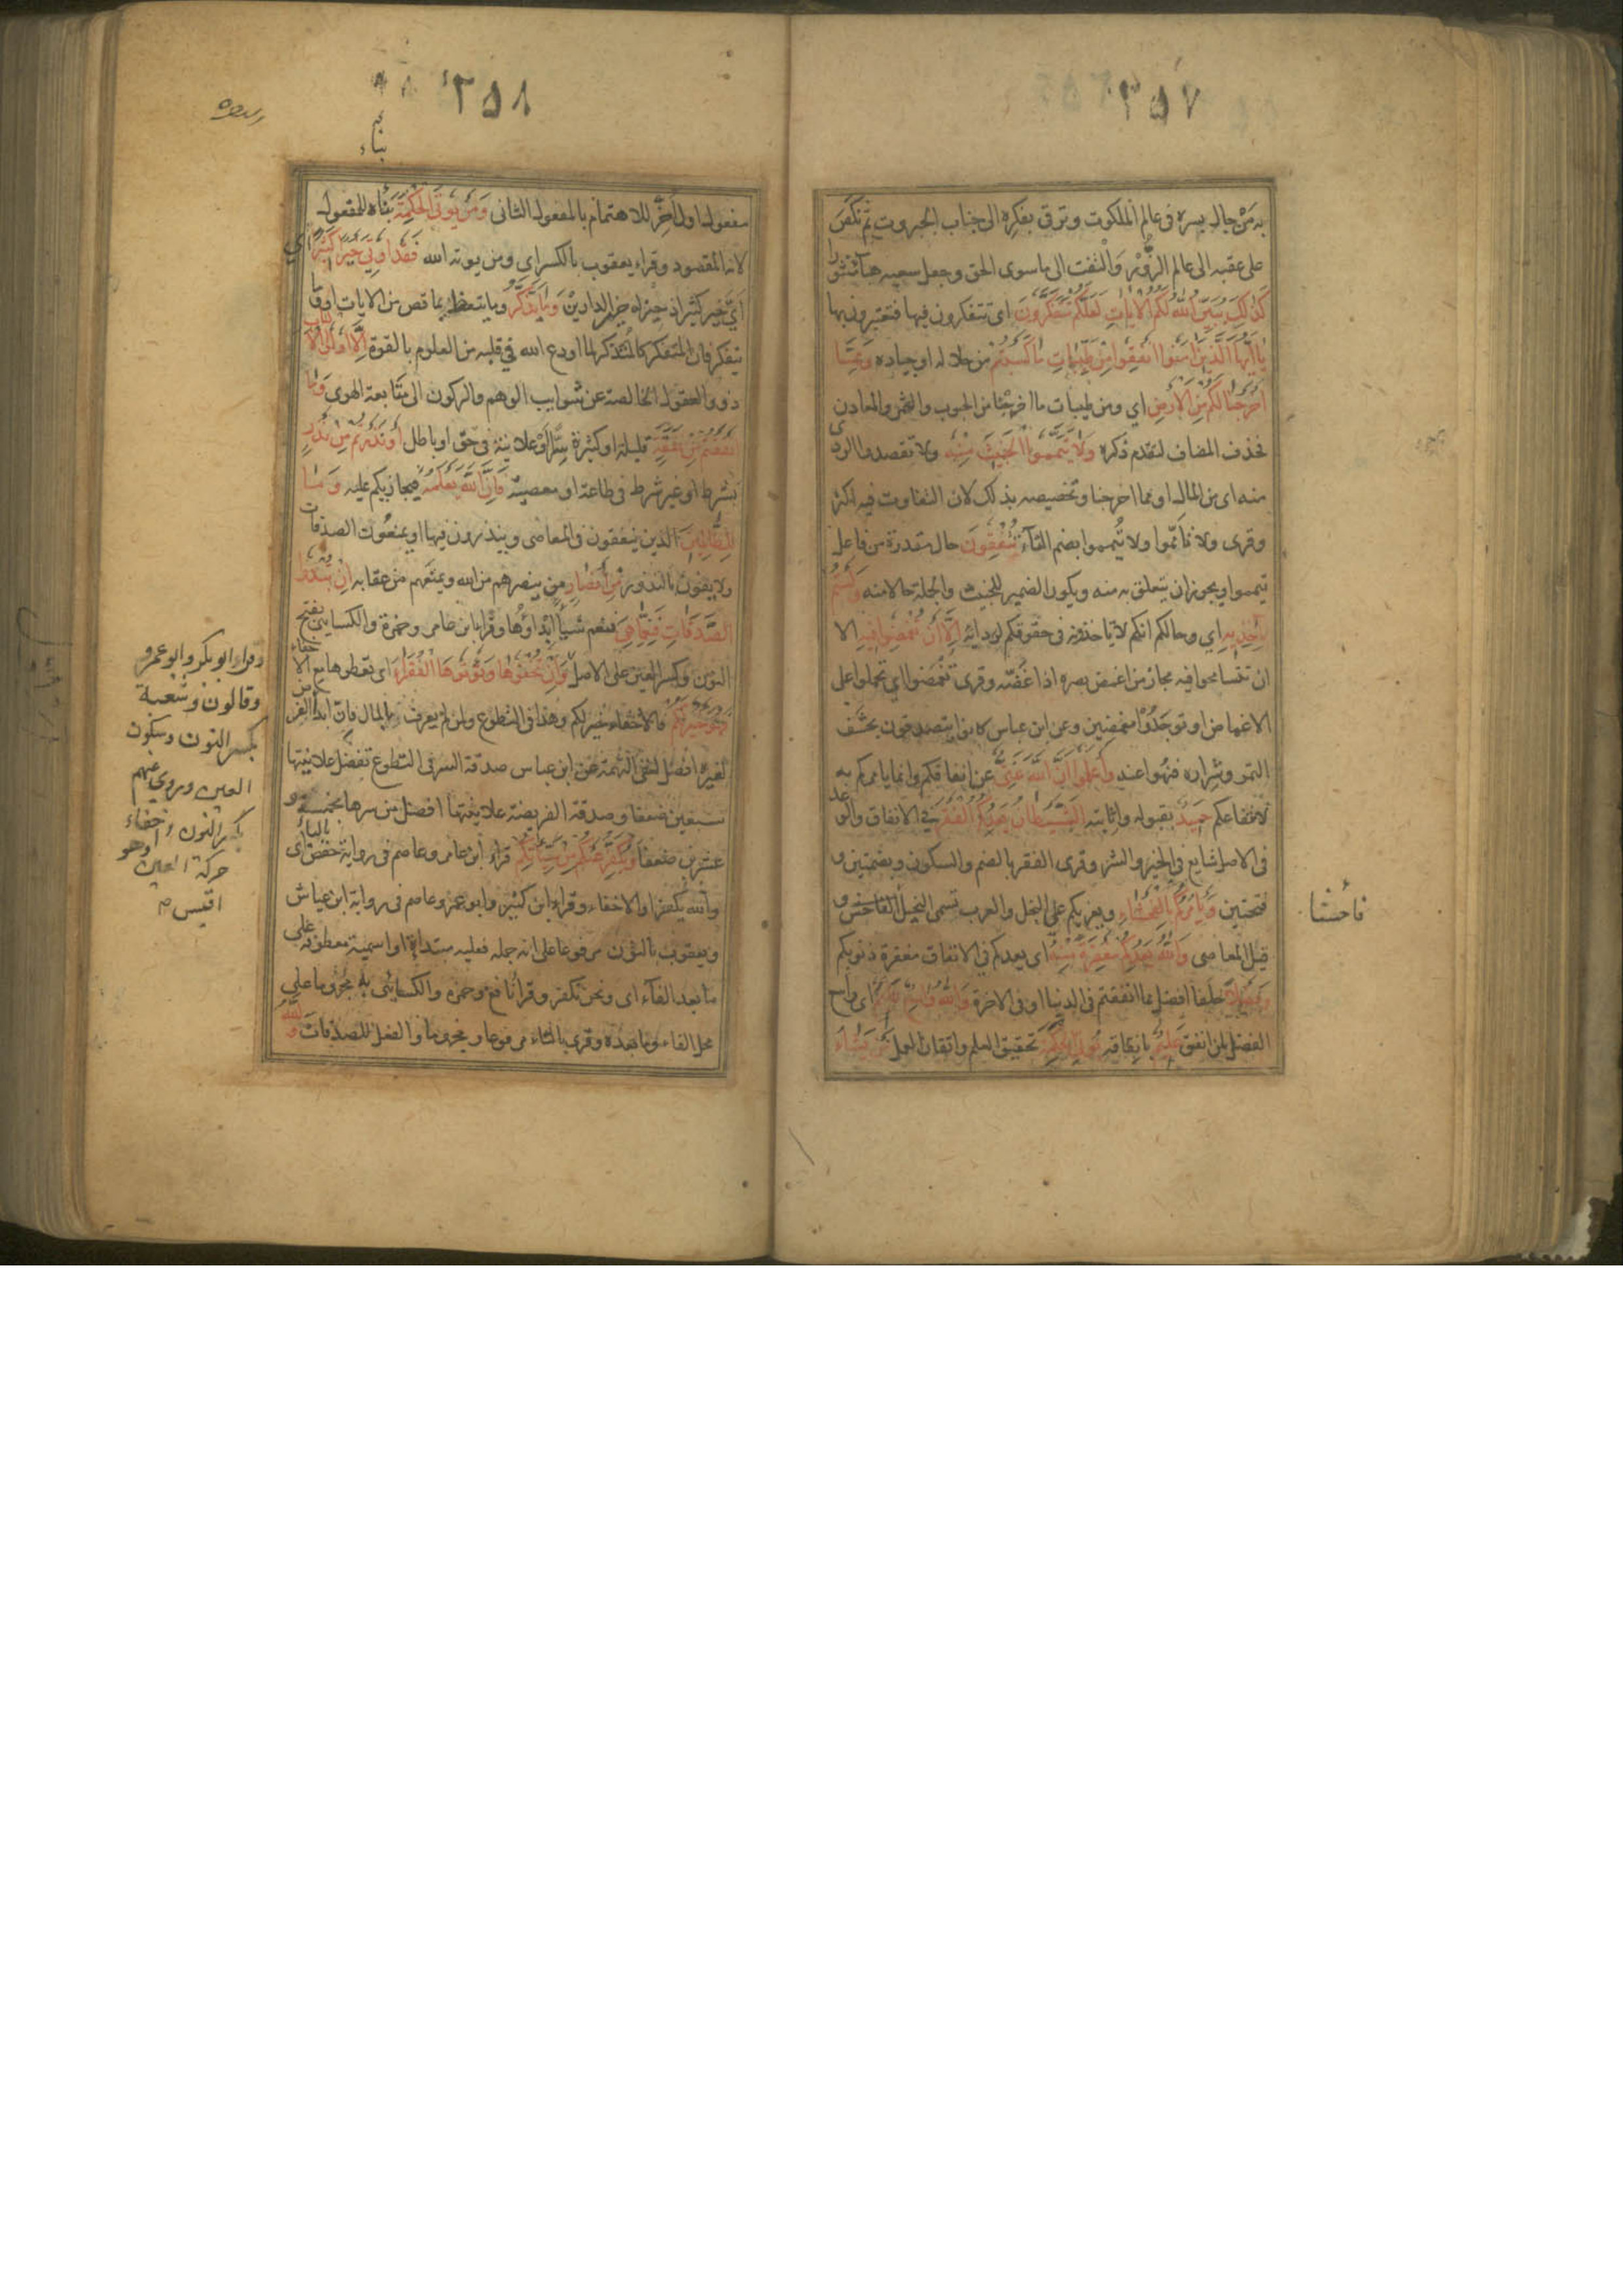 ٣٥٧
به من جال بسره فى عالم الملكوت وترقى بفكره الى جناب الجبروت ثم نكص
على عقبيه الى عالم الزُّور والتفت الى ما سوى الحق وجعل سعيه هبآء منثورا
كَذٰلِكَ يُبَيِّنُ اللّٰهُ لَكُمُ الْاٰيَاتِ لَعَلَّكُمْ تَتَفَكَّرُونَ اى تتفكرون فيها فتعتبرون بها
يَا اَيُّهَا الَّذِينَ اٰمَنُوا اَنْفِقُوا مِنْ طَيِّبَاتِ مَا كَسَبْتُمْ من حلاله او جياده وَمِمَّا
اَخْرَجْنَا لَكُمْ مِنَ الْاَرْضِ اي ومن طيبات ما اخرجنا من الحبوب والثمر والمعادن
فحذف المضاف لتقدم ذكره وَلَا تَيَمَّمُوا الْخَبِيثَ مِنْهُ ولا تقصدوا الردى
منه اى من المال او مما اخرجنا وتخصيصه بذلك لان التفاوت فيه اكثر
وقرى ولا تأمّموا ولا تُيمموا بضم التآء تُنْفِقُونَ حال مقدرة من فاعل
تيمموا ويجوز ان يتعلق به منه ويكون الضمير للخبيث والجملة حالا منه وَلَسْتُمْ
بِاٰخِذِيهِ اي وحالكم انكم لا تأخذونه فى حقوقكم لردائته اِلَّا اَنْ تُغْمِضُوا فِيهِ الا
ان تتسامحوا فيه مجاز من اغمض بصره اذا غضّه وقرى تغمضوا اي تحملوا على
الاغماض او توجدُوا مغمضين وعن ابن عباس كانوا يتصدقون بحشف
التمر وشراره فنهوا عنه وَاعْلَمُوا اَنَّ اللّٰهَ غَنِيٌّ عن انفاقكم وانما يامركم به
لانتفاعكم حَمِيدٌ بقبوله واثابته اَلشَّيْطَانُ يَعِدُكُمُ الْفَقْرَ فى الانفاق والوعد
فى الاصل شايع فى الخير والشر وقرى الفقر بالضم والسكون وبضمتين و
فتحتين وَيَأْمُرُكُمْ بِالْفَحْشَاءِ ويغريكم على البخل والعرب تسمى البخيل الفاحش و
قيل المعاصى وَاللّٰهُ يَعِدُكُمْ مَغْفِرَةً مِنْهُ اى يعدكم فى الانفاق مغفرة ذنوبكم
وَفَضْلًا خلفا افضل مما انفقتم فى الدنيا او فى الاخرة وَاللّٰهُ وَاسِعٌ اى واسع
الفضل لمن انفق عَلِيمٌ بانفاقه يُؤْتِي الْحِكْمَةَ تحقيق العلم واتقان العمل مَنْ يَشَاءُ
فاحشا
٣٥٨
بناء
مفعول اول أخّر للاهتمام بالمفعول الثانى وَمَنْ يُؤْتَ الْحِكْمَةَ بناه للمفعول
لانه المقصود وقراء يعقوب بالكسر اي ومن يوته الله فَقَدْ اُوتِيَ خَيْرًا كَثِيرًا اي
اَيّ خير كثير اذ حيز له خير الدارين وَمَا يَذَّكَّرُ وما يتعظ بما قص من الايات او ما
يتفكر فان المتفكر كالمتذكر لما اودع الله فى قلبه من العلوم بالقوة اِلَّا اُولُوا الْاَلْبَابِ
ذوو العقول الخالصة عن شوايب الوهم والركون الى متابعة الهوى وَمَا
اَنْفَقْتُمْ مِنْ نَفَقَةٍ قليلة او كثيرة سِرًّا او علانية فى حق او باطل اَوْ نَذَرْتُمْ مِنْ نَذْرٍ
بشرط او غير شرط فى طاعة او معصية فَاِنَّ اللّٰهَ يَعْلَمُهُ فيجازيكم عليه وَمَا
لِلظَّالِمِينَ الذين ينفقون فى المعاصى وينذرون فيها او يمنعون الصدقات
ولا يفون بالنذور مِنْ اَنْصَارٍ من ينصرهم من الله ويمنعهم من عقابه اِنْ تُبْدُوا
الصَّدَقَاتِ فَنِعِمَّا هِيَ فنعم شيأ ابداؤها وقرأ ابن عامر وحمزة والكسائى بفتح
النون وكسر العين على الاصل وَاِنْ تُخْفُوهَا وَتُؤْتُوهَا الْفُقَرَاءَ اى تعطوها مع الاخفاء
فَهُوَ خَيْرٌ لَكُمْ فالاخفاء خير لكم وهذا فى التطوع ولمن لم يعرف بالمال فان ابداء الفرض
لغيره افضل لنفى التهمة عن ابن عباس صدقة السر فى التطوع تفضل علانيتها
سبعين ضعفا وصدقة الفريضة علانيتها افضل من سرها بخمسة و
عشرين ضعفا وَيُكَفِّرُ عَنْكُمْ مِنْ سَيِّاٰتِكُمْ قراء ابن عامر وعاصم فى رواية حفص بالياء اى
والله يكفر او الاخفاء وقراء ابن كثير وابو عمرو وعاصم فى رواية ابن عياش
ويعقوب بالنون مرفوعا على انه جملة فعليه مبتدأة او اسمية معطوفة على
ما بعد الفآء اى ونحن نكفر وقرأ نافع وحمزه والكسائى به مجزوما على
محل الفاء وما بعده وقرى بالتاء مرفوعا ومجزوما والفعل للصدقات وَاللّٰهُ
وقراء ابو بكر وابو عمرو
وقالون وشعبة
بكسر النون وسكون
العين وروى عنهم
بكسر النون واخفاء
حركة العين وهو
اقيس م